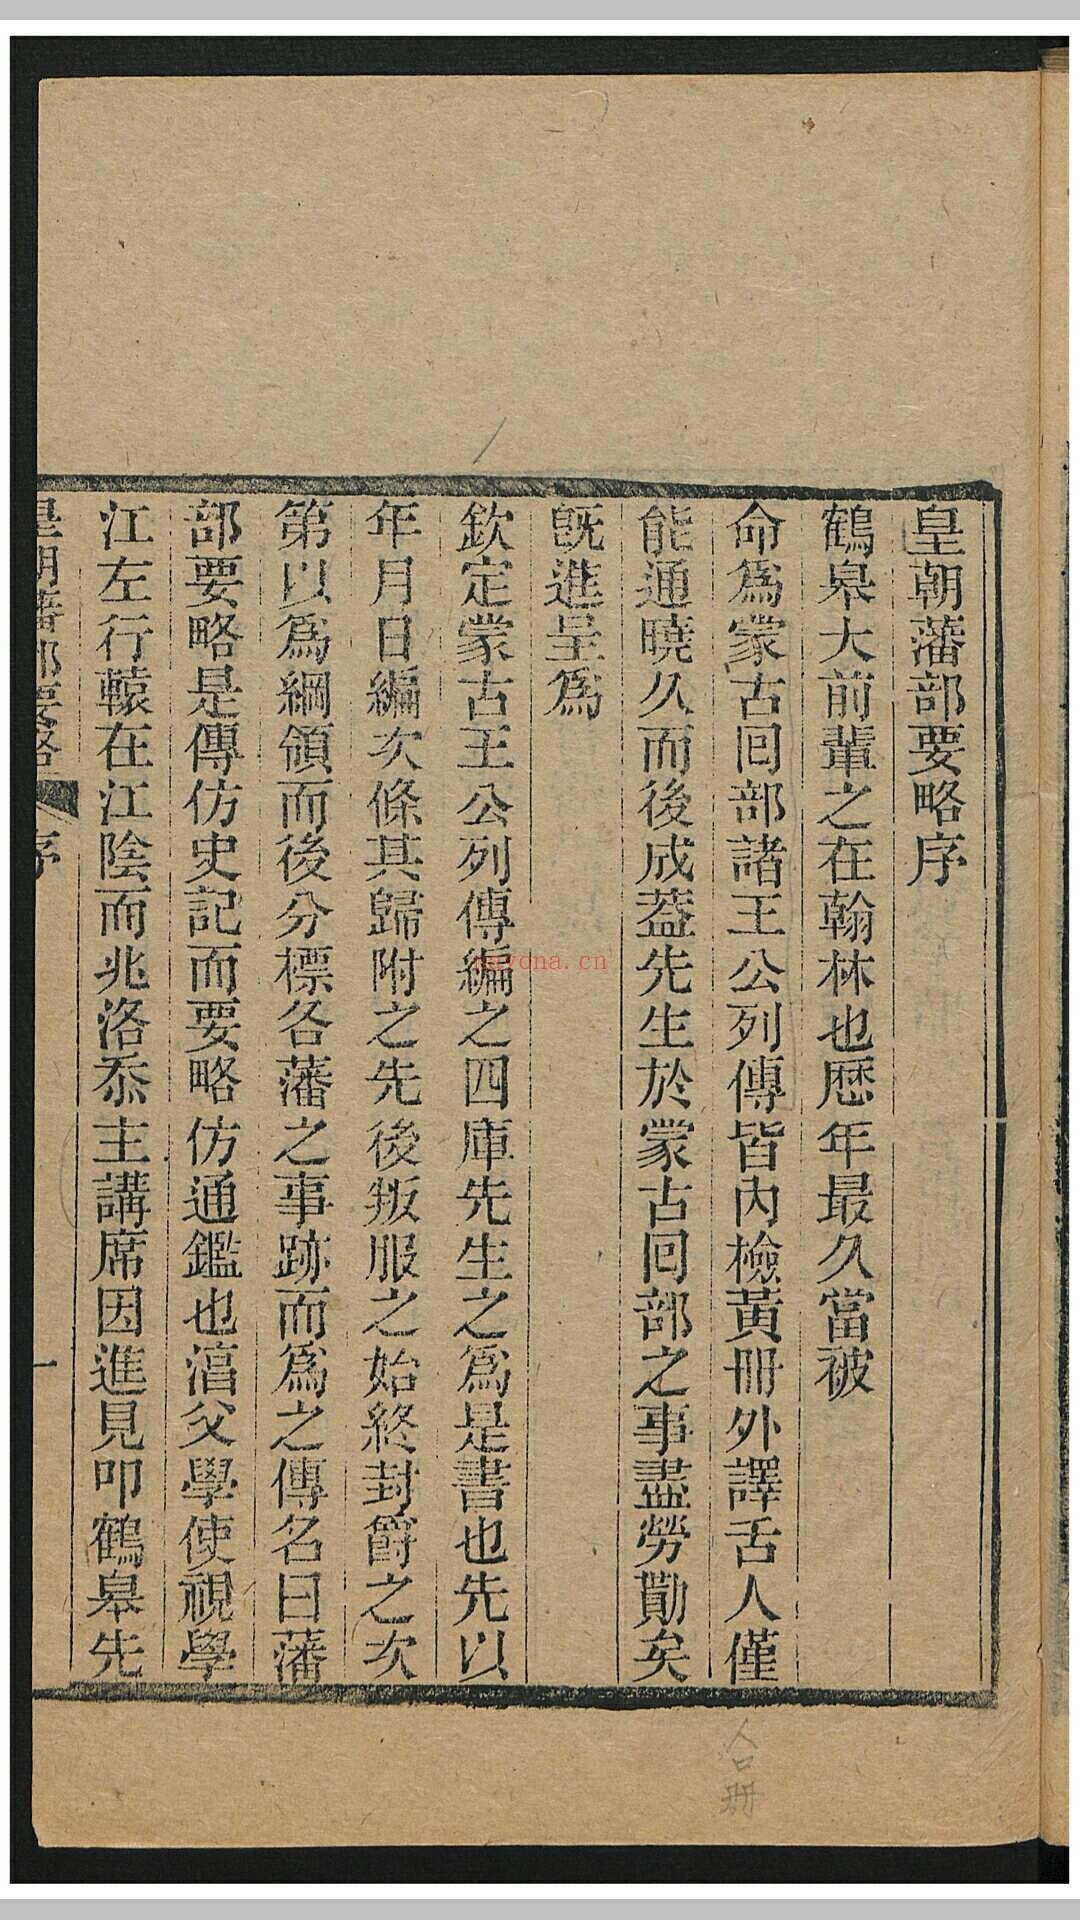 皇朝藩部要略序
鶴皋大前輩之在翰林也歷年最久當被
命爲蒙古回部諸王公列傳皆內檢黃冊外譯舌人僅
能通曉久而後成葢先生於蒙古回部之事盡勞勩矣
旣進呈爲
欽定蒙古王公列傳編之四庫先生之爲是書也先以
年月日編次條其歸附之先後叛服之始終封爵之次
第以爲綱領而後分標各藩之事跡而爲之傳名曰藩
部要略是傳仿史記而要略仿通鑑也湻父學使視學
江左行轅在江陰而兆洛忝主講席因進見叩鶴皋先
皇朝藩部要略 序 一
合冊
nayona.cn